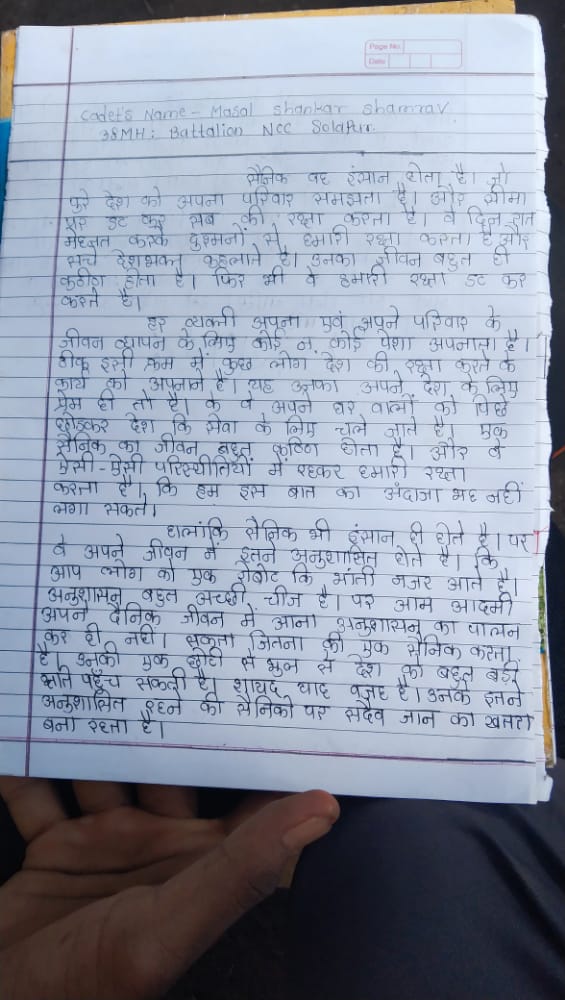 Page No.
Date
Cadet's Name - Masal Shankar Shamrav
38MH: Battalion NCC Solapur.
सैनिक वह इंसान होता है। जो
पुरे देश को अपना परिवार समझता है। और सीमा
पर डट कर सब की रक्षा करता है। वे दिन रात
मेहनत करके दुश्मनों से हमारी रक्षा करता है और
सच्चे देशभक्त कहलाते है। उनका जीवन बहुत ही
कठीण होता है। फिर भी वे हमारी रक्षा डट कर
करते है।
हर व्यक्ती अपना एवं अपने परिवार के
जीवन व्यापन के लिए कोई न कोई पेशा अपनाता है।
ठीक इसी क्रम में कुछ लोग देश की रक्षा करने के
कार्य को अपनाते है। यह उनका अपने देश के लिए
प्रेम ही तो है। के वे अपने घर वालों को पिछे
छोडकर देश कि सेवा के लिए चले जाते है। एक
सैनिक का जीवन बहुत कठिण होता है। और वे
ऐसी-ऐसी परिस्थीतियों में रहकर हमारी रक्षा
करता है। कि हम इस बात का अंदाजा भह नहीं
लगा सकते।
हालांकि सैनिक भी इंसान ही होते है। पर
वे अपने जीवन में इतने अनुशासित होते है। कि
आप लोग को एक रोबोट कि भांती नजर आते है।
अनुशासन बहुत अच्छी चीज है। पर आम आदमी
अपने दैनिक जीवन में आना अनुशासन का पालन
कर ही नहीं। सकता जितना की एक सैनिक करता
है। उनकी एक छोटी से भुल से देश को बहुत बडी
क्षति पहुँच सकती है। शायद यह वजह है। उनके इतने
अनुशासित रहने की सैनिको पर सदैव जान का खतरा
बना रहता है।